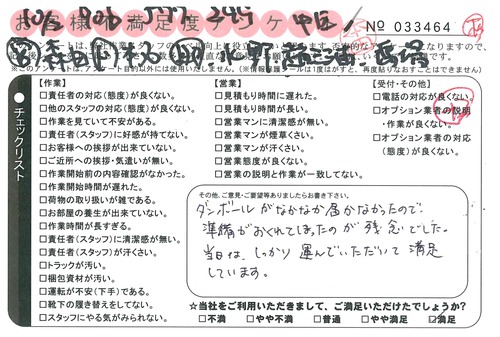 お客様の満足度アンケート
№ 033464
●チェックリスト
【作業】
□責任者の対応(態度)が良くない。
□他のスタッフの対応(態度)が良くない。
□作業を見ていて不安がある。
□責任者(スタッフ)に好感が持てない。
□お客様への挨拶が出来ていない。
□ご近所への挨拶・気遣いが無い。
□作業開始前の内容確認がなかった。
□作業開始時間が遅れた。
□荷物の取り扱いが雑である。
□お部屋の養生が出来ていない。
□作業時間が長すぎる。
□責任者(スタッフ)に清潔感が無い。
□責任者(スタッフ)が汗くさい。
□トラックが汚い。
□梱包資材が汚い。
□運転が不安(下手)である。
□靴下の履き替えをしてない。
□スタッフにやる気がみられない。
【営業】
□見積もり時間に遅れた。
□見積もり時間が長い。
□営業マンに清潔感が無い。
□営業マンが煙草くさい。
□営業マンが汗くさい。
□営業態度が良くない。
□営業の説明と作業が一致してない。
【受付・その他】
□電話の対応が良くない。
□オプション業者の説明
・作業が良くない。
□オプション業者の対応
(態度)が良くない。
その他、ご意見・ご要望等ありましたらお書き下さい。
ダンボールがなかなか届かなかったので
準備がおくれてしまったのが残念でした。
当日は、しっかり運んでいただいて満足
しています。
☆当社をご利用いただきまして、ご満足いただけたでしょうか?
□不満 □やや不満 □普通 □やや満足 ☑満足